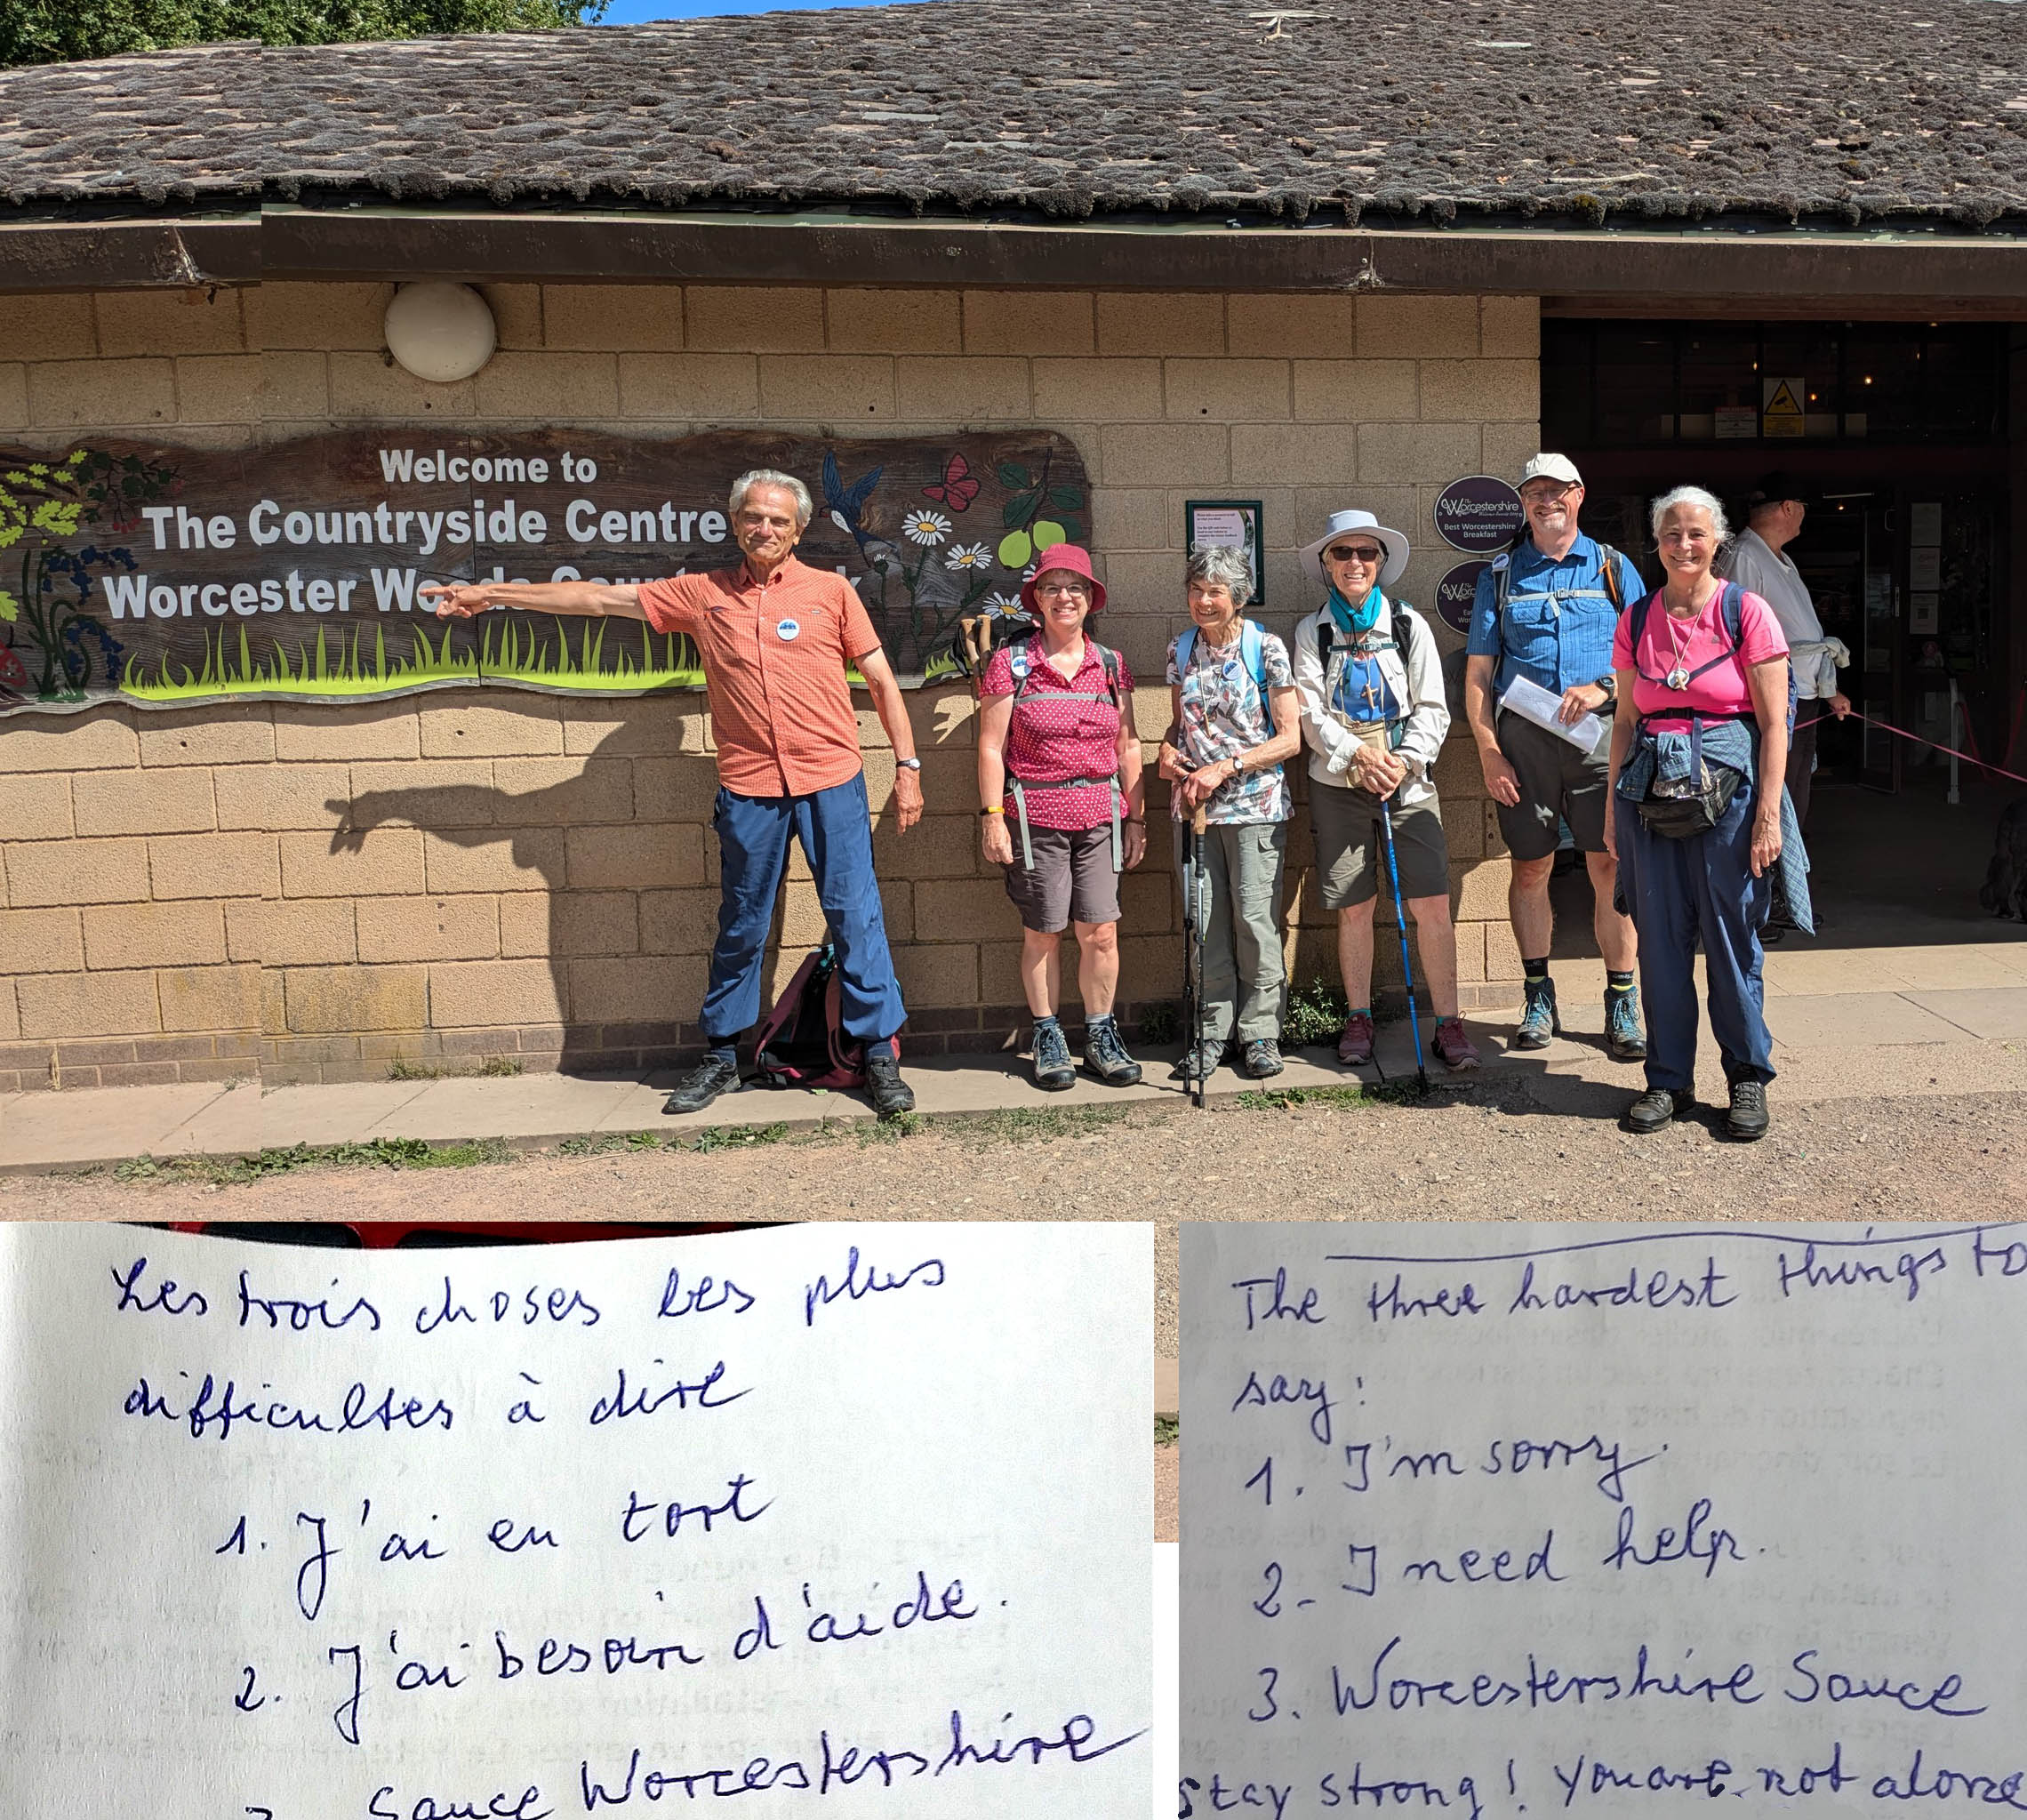 Welcome to
The Countryside Centre
Worcester Woods Count k
The
Worcestershire
Best Worcestershire
Breakfast
The
Les trois choses les plus
difficultes à dire
1. J'ai eu tort
2. J'ai besoin d'aide.
Sauce Worcestershire
The three hardest things to
say:
1. I'm sorry.
2. I need help.
3. Worcestershire Sauce
Stay strong! You are not alone